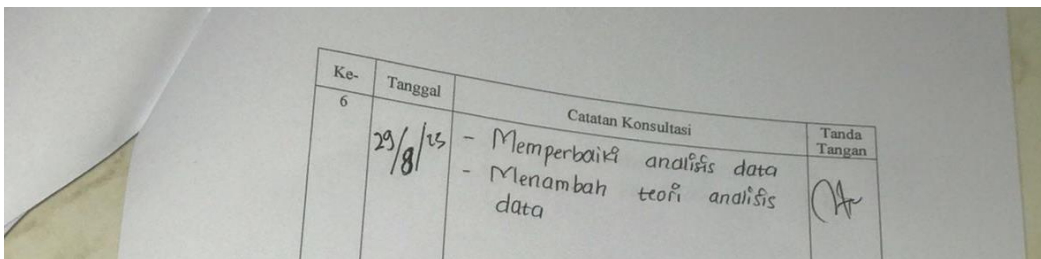 Ke-
Tanggal
Catatan Konsultasi
Tanda
Tangan
6
29/8/25
- Memperbaiki analisis data
- Menambah teori analisis
data